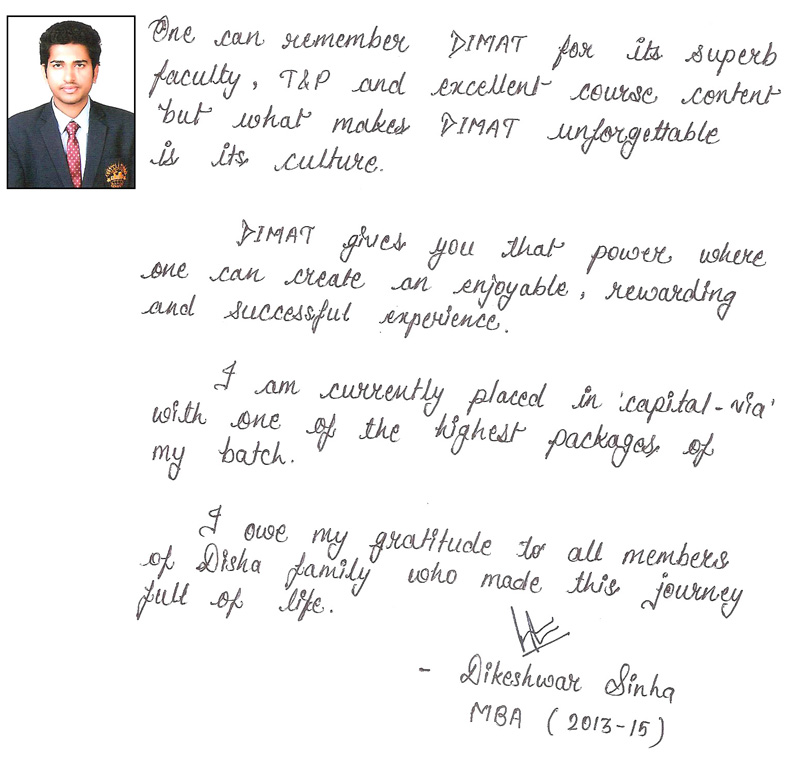 One can remember DIMAT for its superb
faculty, T&P and excellent course content
but what makes DIMAT unforgettable
is its culture.
DIMAT gives you that power where
one can create an enjoyable, rewarding
and successful experience.
I am currently placed in 'capital-via'
with one of the highest packages of
my batch.
I owe my gratitude to all members
of Disha family who made this journey
full of life.
- Dikeshwar Sinha
MBA (2013-15)